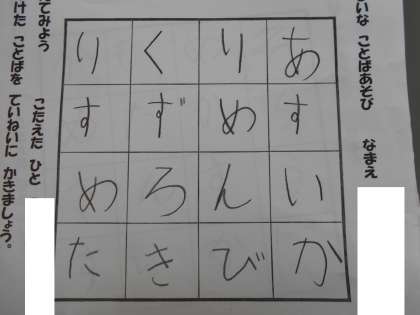 いな ことばあそび なまえ
あすいか
りめんび
くずろき
りすめた
てみよう こたえた ひと
けた ことばを ていねいに かきましょう。